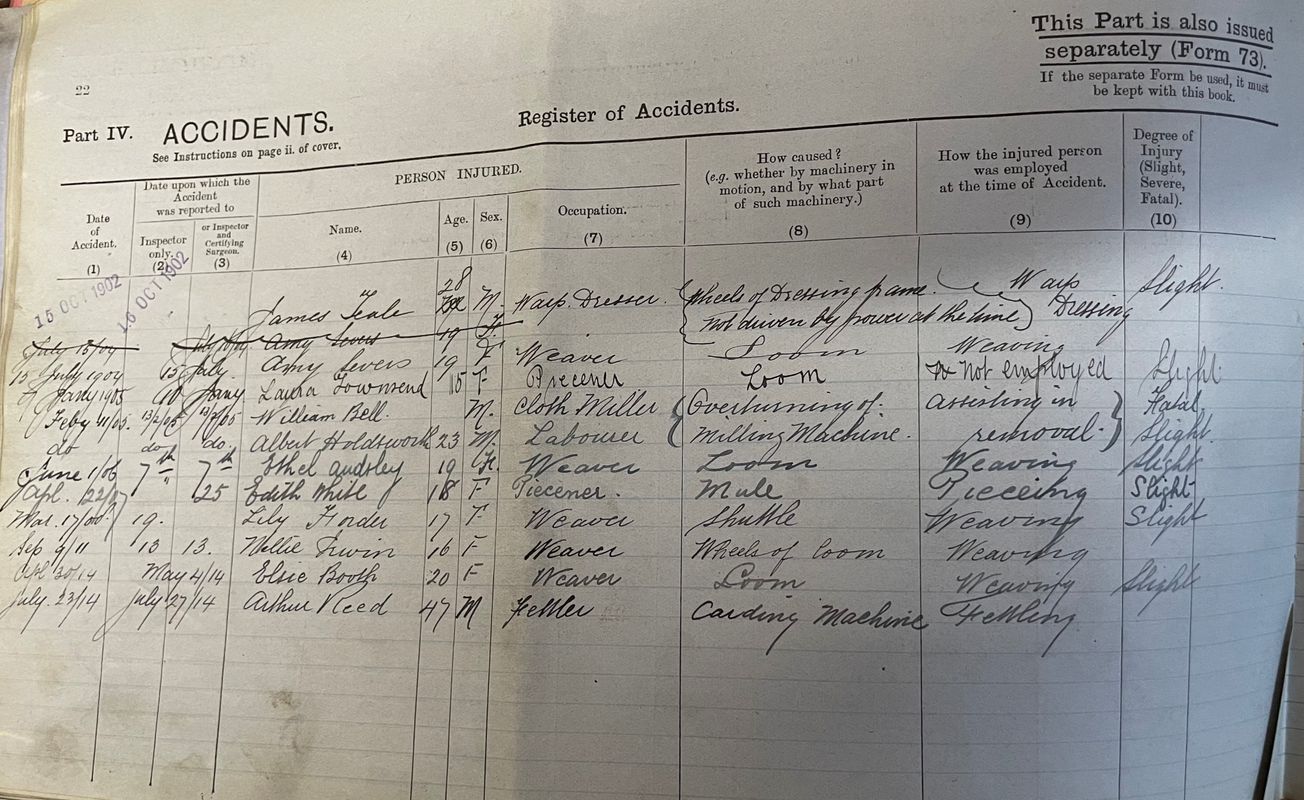 This Part is also issued
separately (Form 73).
If the separate Form be used, it must
be kept with this book.
22
Part IV. ACCIDENTS. Register of Accidents.
See Instructions on page ii. of cover.
Date of Accident. (1)
Date upon which the Accident was reported to
Inspector only. (2)
or Inspector and Certifying Surgeon. (3)
PERSON INJURED.
Name. (4)
Age. (5)
Sex. (6)
Occupation. (7)
How caused? (e.g. whether by machinery in motion, and by what part of such machinery.) (8)
How the injured person was employed at the time of Accident. (9)
Degree of Injury (Slight, Severe, Fatal). (10)
15 OCT 1902 16 OCT 1902 James Teale 28 M. Warp Dresser. Wheels of Dressing frame. Not driven by power at the time Warp Dressing Slight.
July 15/04 Amy Severs 19 F.
15 July 1904 15 July Amy Severs 19 F Weaver Loom Weaving Slight
7 Jany 1905 Jany Laura Townsend 15 F Piecener Loom Not employed
Feby 11/05 13/2/05 13/2/05 William Bell. M. Cloth Miller Overturning of Milling Machine. assisting in removal. Fatal
do do do Albert Holdsworth 23 M. Labourer Slight.
June 1/06 7th 7th Ethel Audsley 19 F. Weaver Loom Weaving Slight
Apl. 22/07 25 Edith White 18 F Piecener. Mule Pieceing Slight
Mar. 17/08 19. Lily Forder 17 F Weaver Shuttle Weaving Slight
Sep 9/11 13 13. Nellie Irwin 16 F Weaver Wheels of loom Weaving
Apl 30/14 May 4/14 Elsie Booth 20 F Weaver Loom Weaving Slight
July. 23/14 July 27/14 Arthur Reed 47 M Fettler Carding Machine Fettling